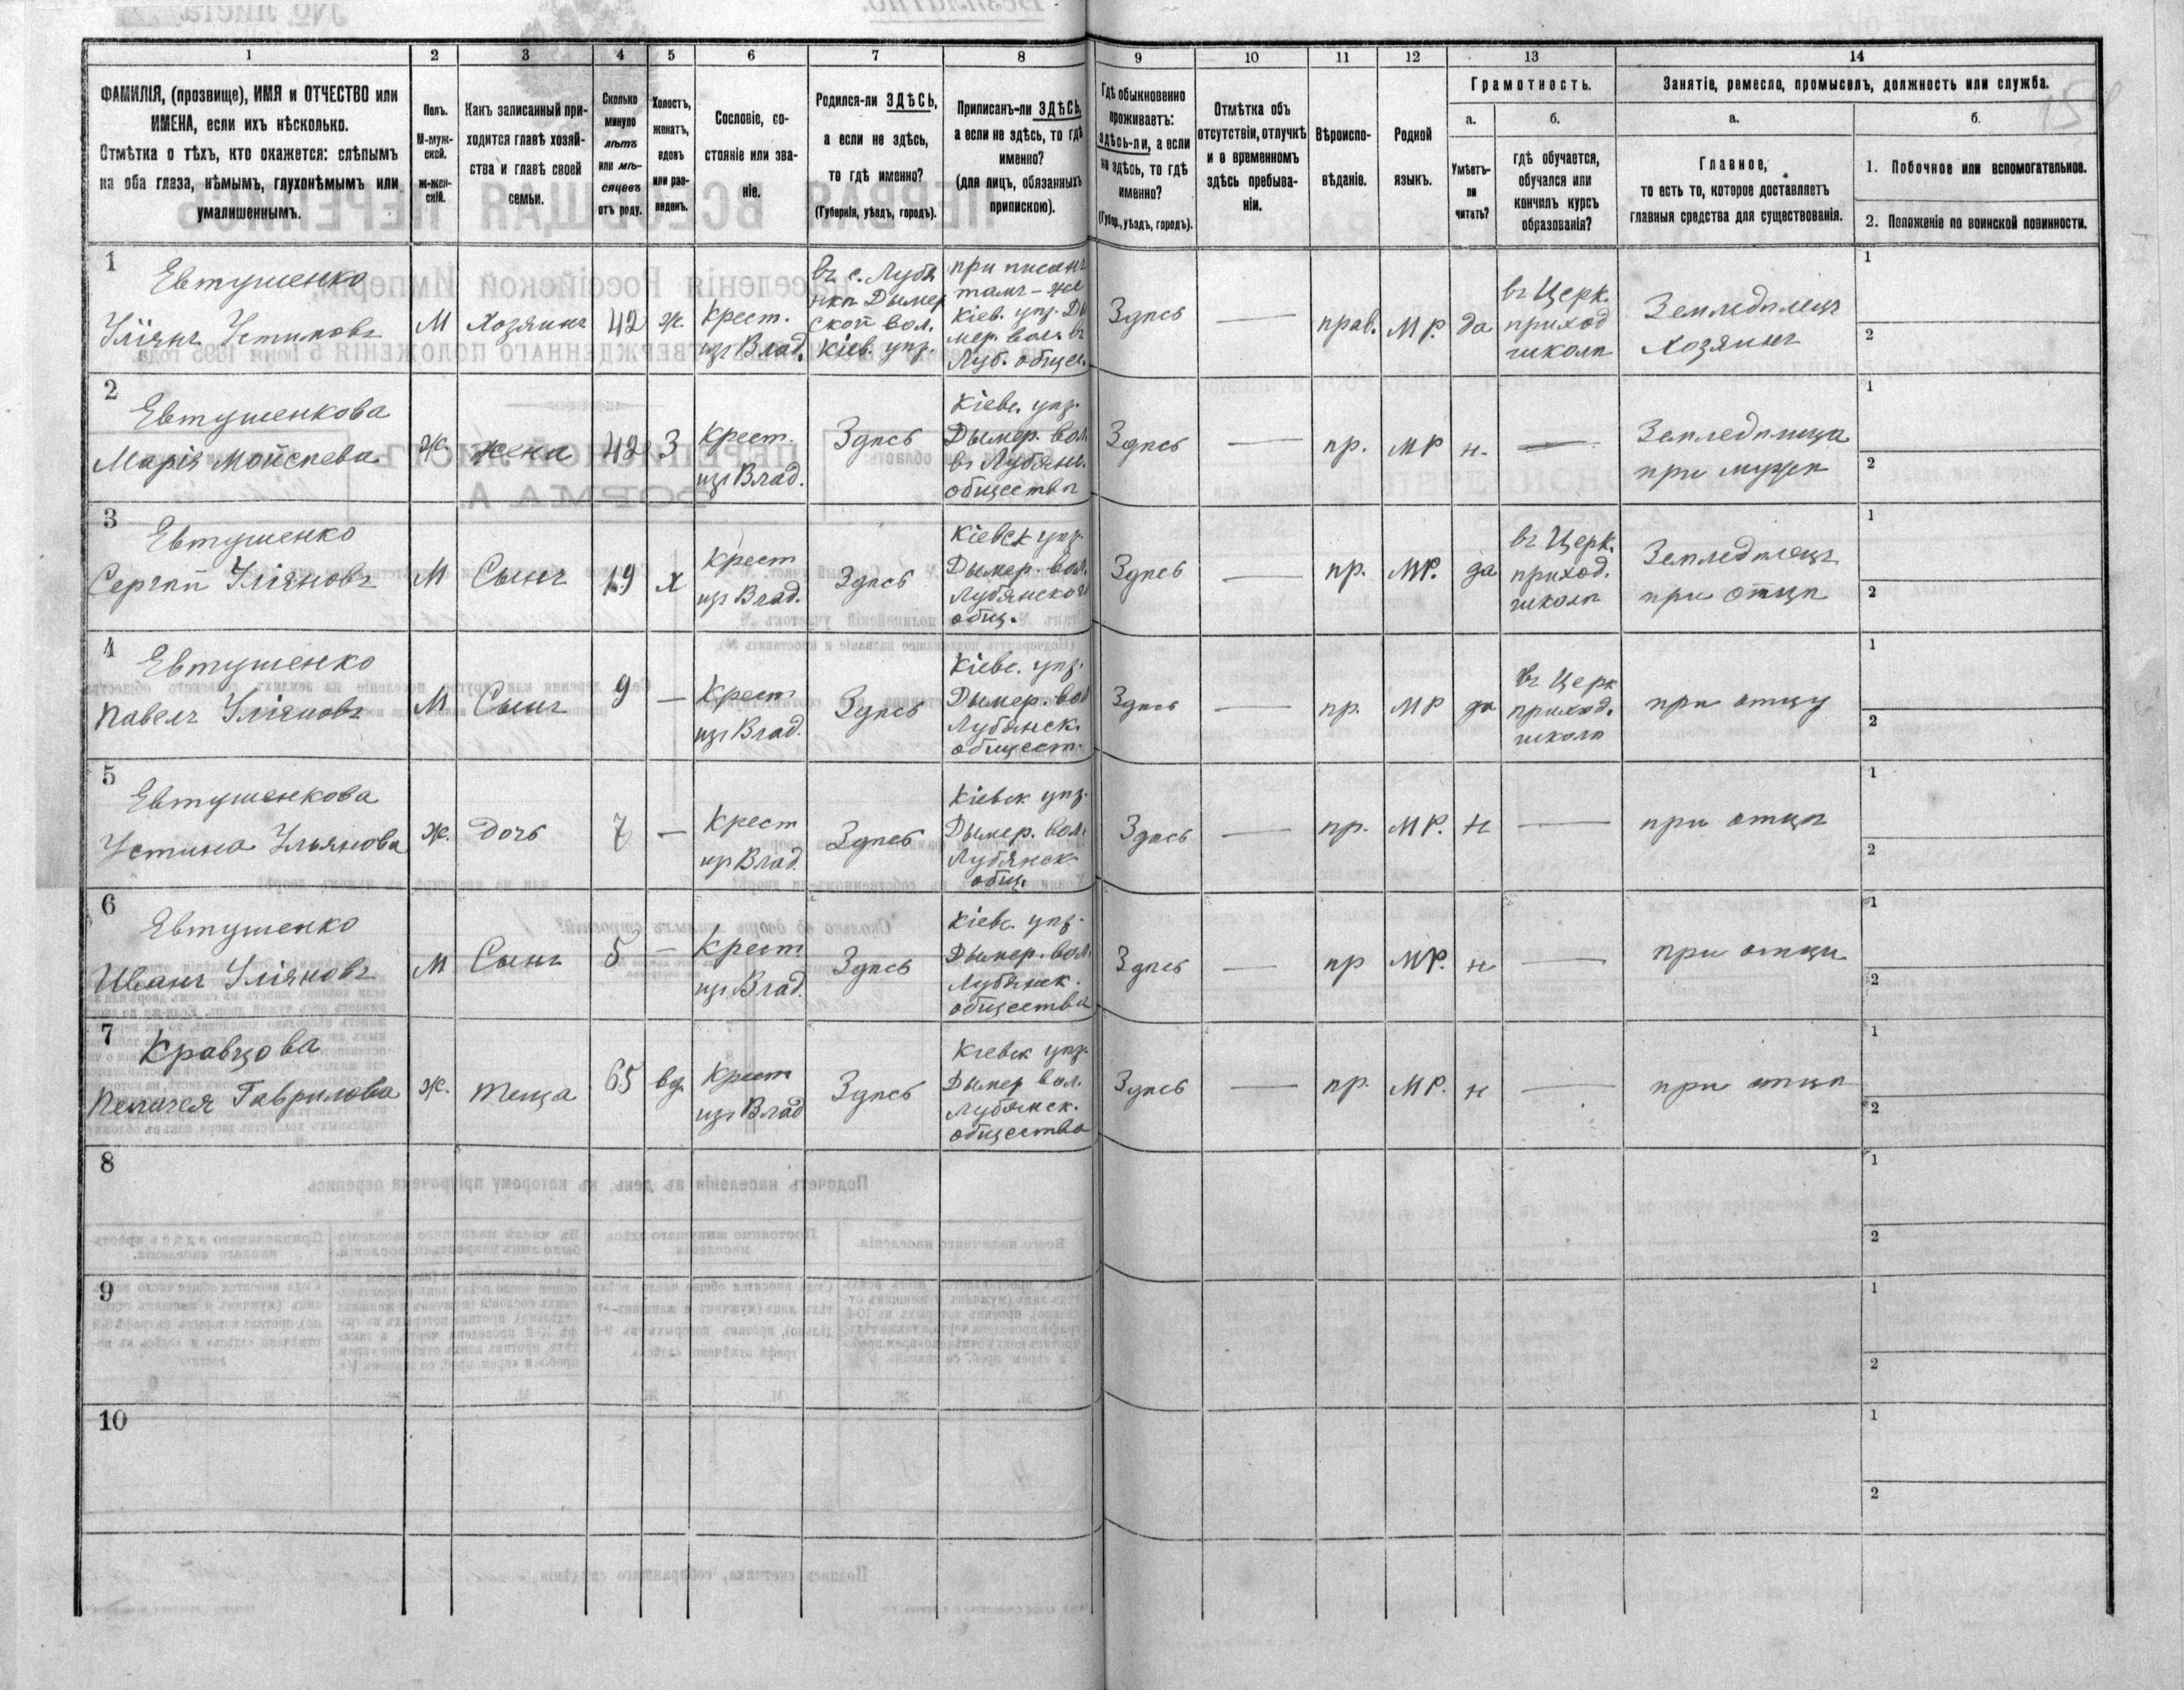 1 2 3 4 5 6 7 8 9 10 11 12 13 14
ФАМИЛІЯ, (прозвище), ИМЯ и ОТЧЕСТВО или
ИМЕНА, если ихъ нѣсколько.
Отмѣтка о тѣхъ, кто окажется: слѣпымъ
на оба глаза, нѣмымъ, глухонѣмымъ или
умалишеннымъ.
Полъ.
М-муж-
ской.
Ж-жен-
скій.
Какъ записанный при-
ходится главѣ хозяй-
ства и главѣ своей
семьи.
Сколько
минуло
лѣтъ
или мѣ-
сяцевъ
отъ роду.
Холостъ,
женатъ,
вдовъ
или раз-
веденъ.
Сословіе, со-
стояніе или зва-
ніе.
Родился-ли ЗДѢСЬ,
а если не здѣсь,
то гдѣ именно?
(Губернія, уѣздъ, городъ).
Приписанъ-ли ЗДѢСЬ,
а если не здѣсь, то гдѣ
именно?
(для лицъ, обязанныхъ
припискою).
Гдѣ обыкновенно
проживаетъ:
здѣсь-ли, а если
не здѣсь, то гдѣ
именно?
(Губер., уѣздъ, городъ).
Отмѣтка объ
отсутствіи, отлучкѣ
и о временномъ
здѣсь пребыва-
ніи.
Вѣроиспо-
вѣданіе.
Родной
языкъ.
Грамотность.
а.
Умѣетъ-
ли
читать?
б.
гдѣ обучается,
обучался или
кончилъ курсъ
образованія?
Занятіе, ремесло, промыселъ, должность или служба.
а.
Главное,
то есть то, которое доставляетъ
главныя средства для существованія.
б.
1. Побочное или вспомогательное.
2. Положеніе по воинской повинности.
1
Евтушенко
Уліянъ Устимовъ
М
Хозяинъ
42
ж.
Крест.
изъ Влад.
въ с. Лубя
нкѣ Дымер
ской вол.
Кіев. уѣз.
при писанъ
тамъ-же
Кіев. уѣз. Ды
мер. вол. въ
Луб. общес.
Здѣсь
—
прав.
МР.
да
въ Церк.
приход
школѣ
Земледѣлецъ
Хозяинъ
1
2
2
Евтушенкова
Марія Мойсѣева
Ж.
жена
42
З
Крест.
изъ Влад.
Здѣсь
Кіевс. уѣз.
Дымер. вол.
въ Лубянс.
обществѣ
Здѣсь
—
пр.
МР
н.
—
Земледѣлица
при мужѣ
1
2
3
Евтушенко
Сергѣй Уліяновъ
М
Сынъ
19
х
Крест
изъ Влад.
Здѣсь
Кіевск уѣз.
Дымер. вол.
Лубянского
общ.
Здѣсь
—
пр.
МР.
да
въ Церк.
приход.
школѣ
Земледѣлецъ
при отцѣ
1
2
4
Евтушенко
Павелъ Уліяновъ
М
Сынъ
9
—
Крест
изъ Влад.
Здѣсь
Кіевс. уѣз.
Дымер. вол
Лубянск.
общест.
Здѣсь
—
пр.
МР
да
въ Церк
приход.
школѣ
при отцу
1
2
5
Евтушенкова
Устина Ульянова
Ж.
дочь
7
—
Крест
изъ Влад.
Здѣсь
Кіевск уѣз.
Дымер. вол.
Лубянск.
общ.
Здѣсь
—
пр.
МР.
н
—
при отцѣ
1
2
6
Евтушенко
Иванъ Уліяновъ
М
Сынъ
5
—
Крест
изъ Влад.
Здѣсь
Кіевс. уѣз.
Дымер. вол.
Лубянск.
общества
Здѣсь
—
пр
МР.
н
—
при отцѣ
1
2
7
Кравцова
Пелагея Гаврилова
Ж.
теща
65
вд.
Крест
изъ Влад
Здѣсь
Кіевск уѣз.
Дымер вол.
Лубянск.
общества
Здѣсь
—
пр.
МР.
н
—
при отцѣ
1
2
8
1
2
9
1
2
10
1
2